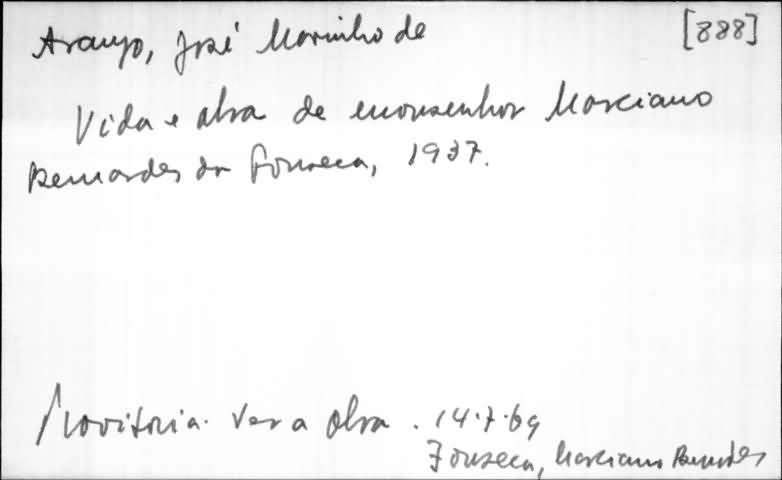 Araujo, José Marinho de [888]
Vida e obra de monsenhor Marciano
Bernardes da Fonseca, 1937.
Provisória. Ver a obra. 14.7.69
Fonseca, Marciano Bernardes